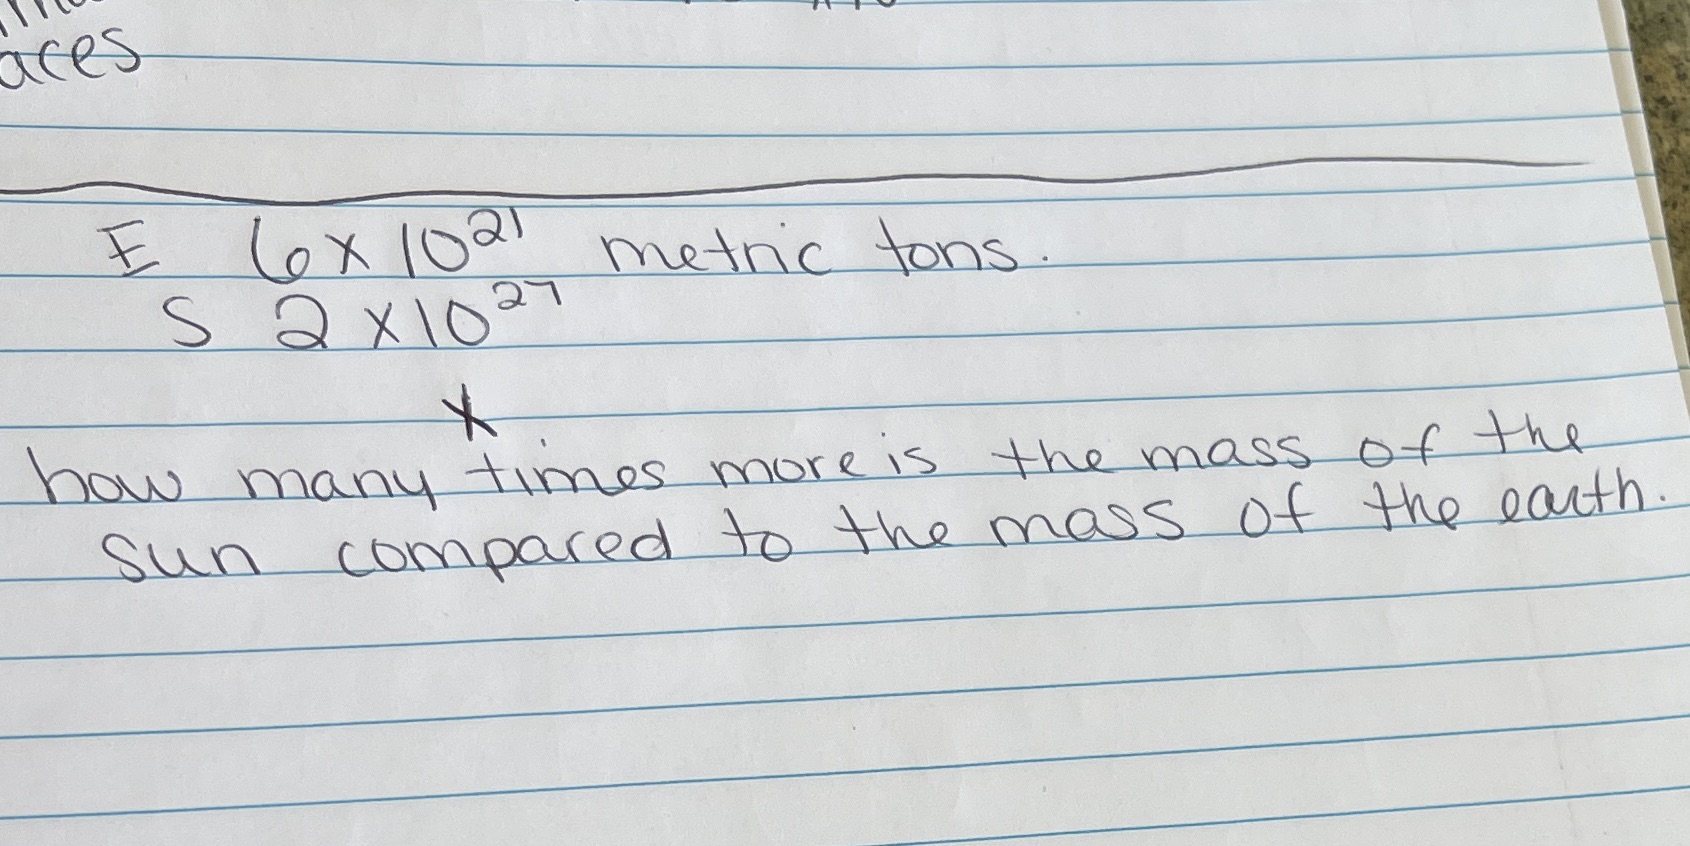 aces
E 6 x 10²¹ metric tons.
S 2 x 10²⁷
x
how many times more is the mass of the
sun compared to the mass of the earth.